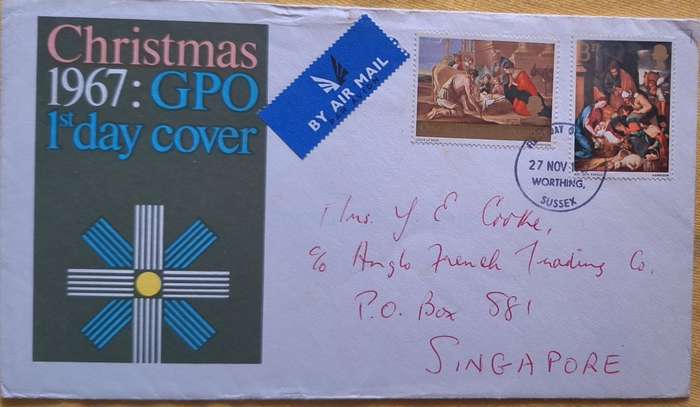 Christmas
1967: GPO
1st day cover
BY AIR MAIL
PAR AVION
8D
FIRST DAY OF
27 NOV 1
WORTHING,
SUSSEX
Mrs. Y E Cooke,
c/o Anglo French Trading Co.
P.O. Box 881
SINGAPORE